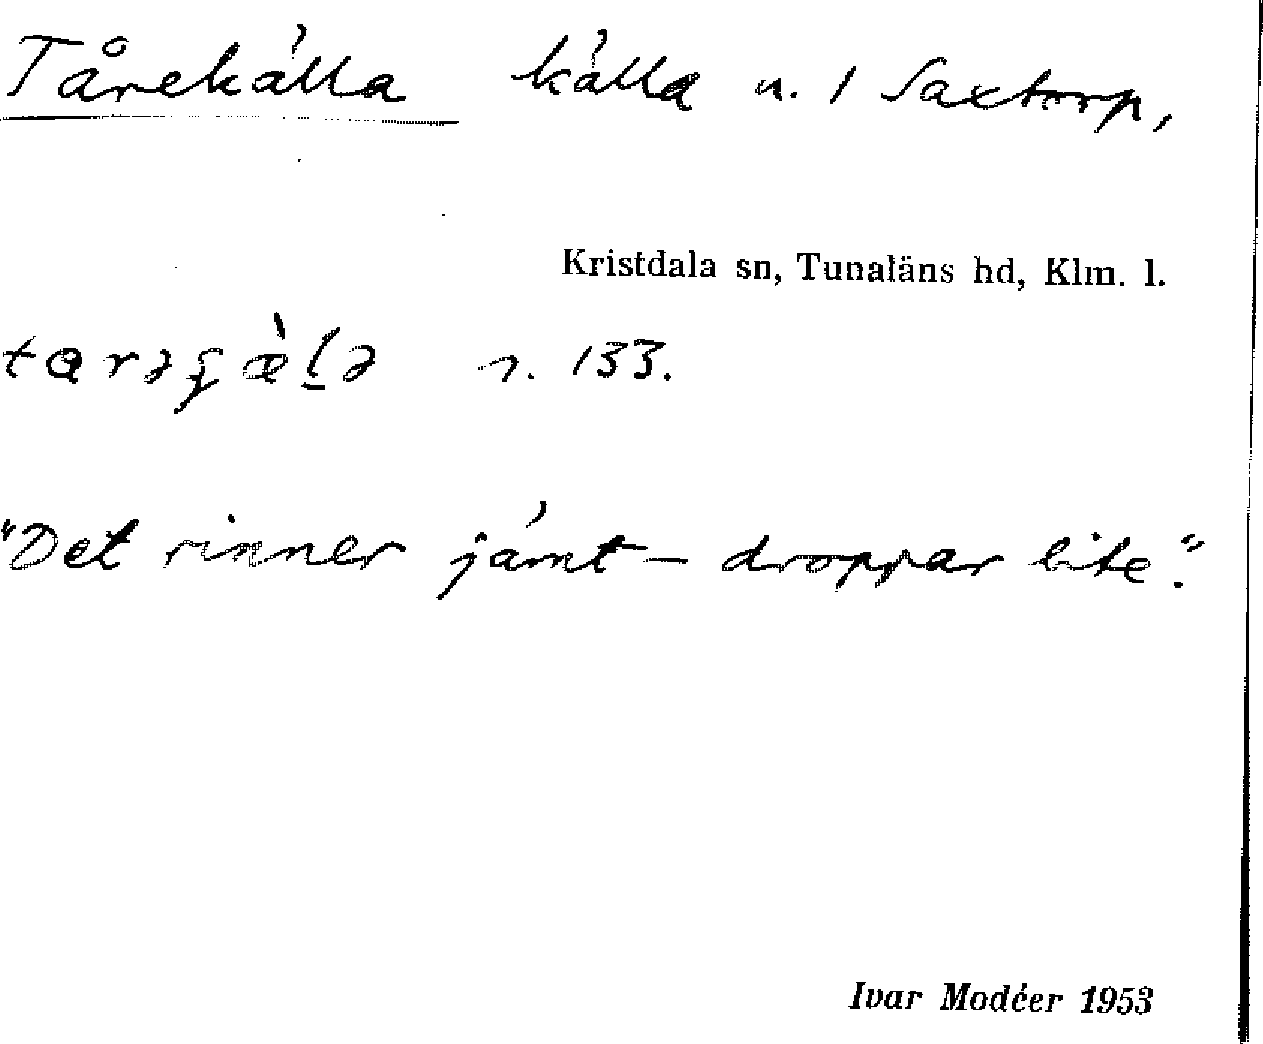 Tårekälla källa u. / Saxtorp,
Kristdala sn, Tunaläns hd, Klm. l.
r. 133.
"Det rinner jämt – droppar lite."
Ivar Modéer 1953